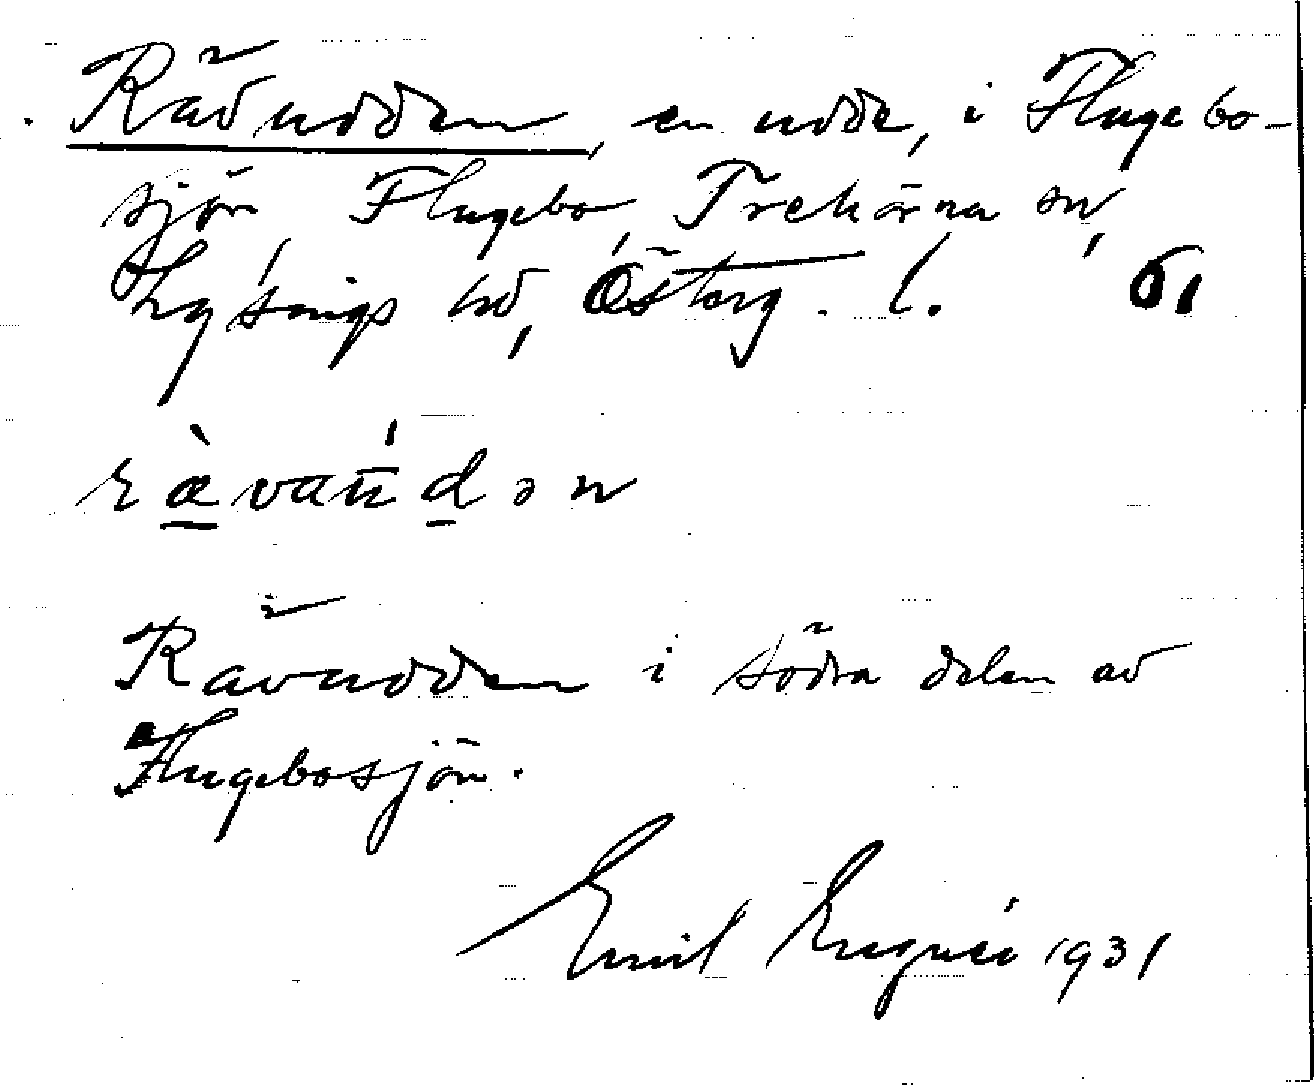 Rävudden, en udde, i Flugebo-
sjön, Flugebo, Trehörna sn,
Lysings hd, Österg. l. 61
rævau̅dən
Rävudden i södra delen av
Flugebosjön.
Emil 1931